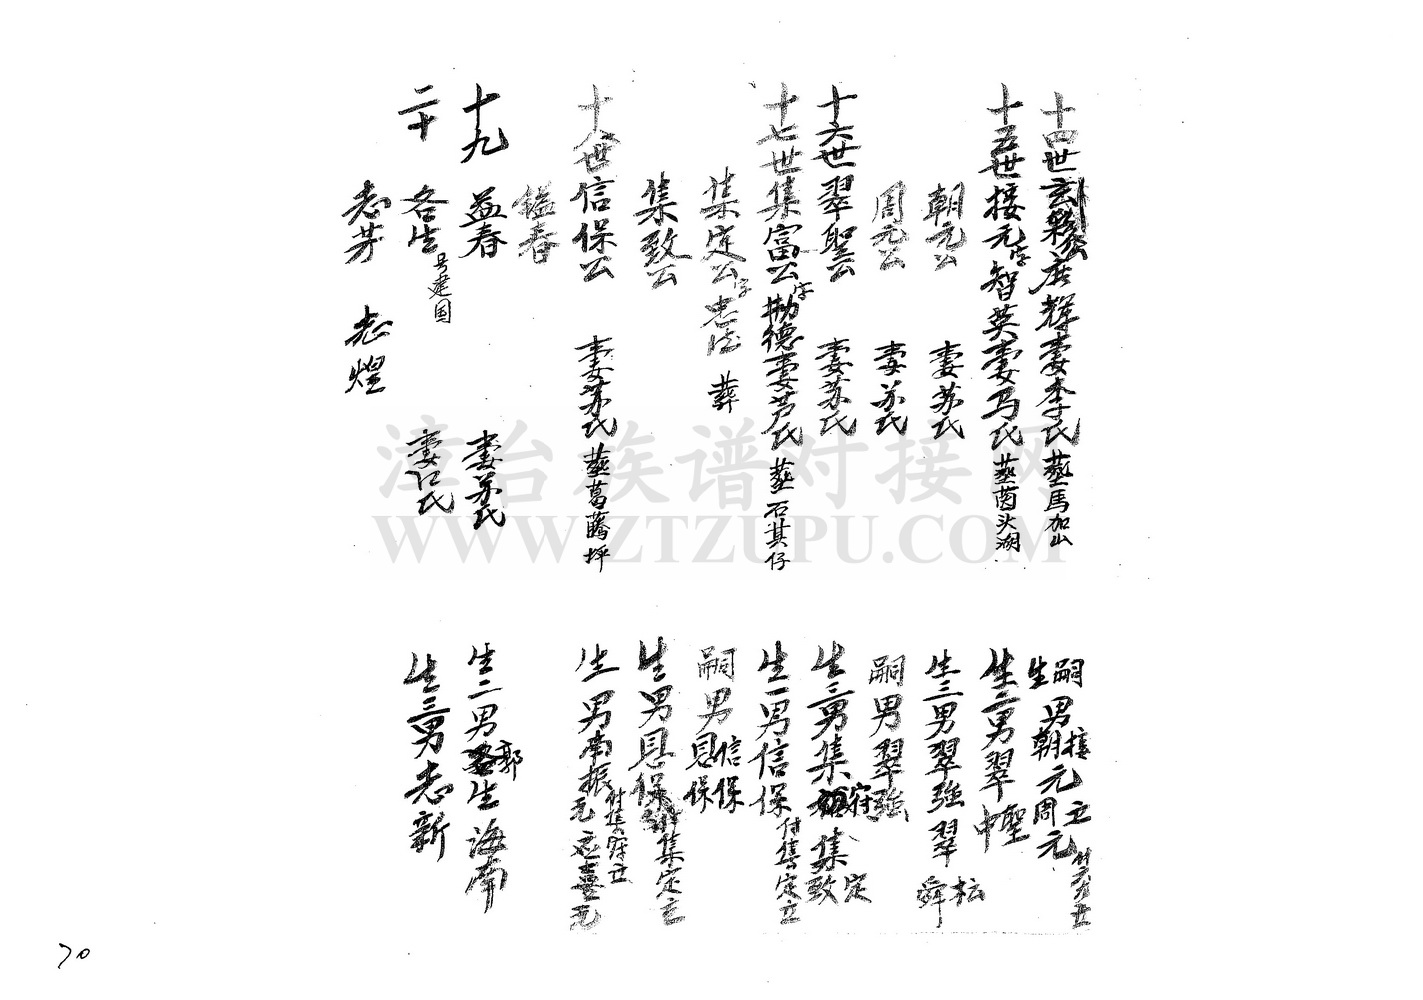 十四世玄 公 廣輝妻李氏葬馬加山
嗣 生 男 接 朝 元 周 立 元
十五世接元字智英妻马氏葬茵头湖
生二男翠聖 中
朝元公 妻苏氏
生三男翠強翠松 舜
周元公 妻苏氏
嗣男翠強
十六世翠聖公 妻苏氏
生三男集府集定 致
十七世集富公字勋德妻芦氏葬石其仔
生一男信保付集定立
集定公字忠 葬
嗣男信保 恩保
集致公
生男恩保 集定立
十八世信保公 妻苏氏葬葛藤坪
生男南振 付集府立
鎰春
十九 益春 妻苏氏
生二男郭生海南
二十 各生号建国 妻江氏
生三男志新
志芳 志燿
淳台族谱对接网
WWW.ZTZUPU.COM
70